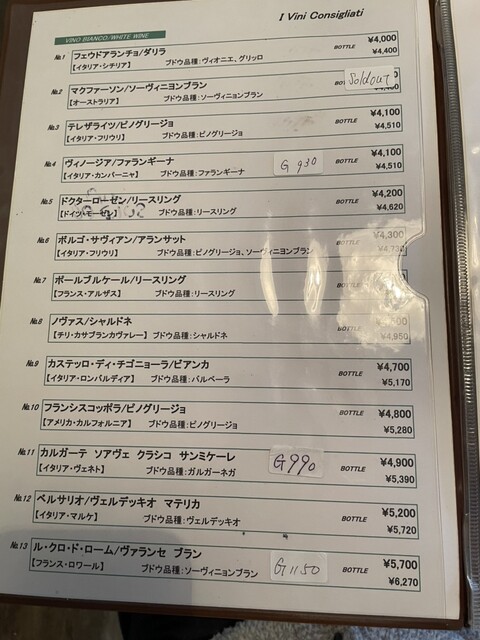 I Vini Consigliati
VINO BIANCO/WHITE WINE
№1 フェウドアランチョ/ダリラ BOTTLE ¥4,000
【イタリア・シチリア】 ブドウ品種:ヴィオニエ、グリッロ ¥4,400
№2 マクファーソン/ソーヴィニヨンブラン BOTTLE Soldout
【オーストラリア】 ブドウ品種:ソーヴィニヨンブラン
№3 テレザライツ/ピノグリージョ BOTTLE ¥4,100
【イタリア・フリウリ】 ブドウ品種:ピノグリージョ ¥4,510
№4 ヴィノージア/ファランギーナ G 930 BOTTLE ¥4,100
【イタリア・カンパーニャ】 ブドウ品種:ファランギーナ ¥4,510
№5 ドクターローゼン/リースリング BOTTLE ¥4,200
【ドイツ・モーゼン】 ブドウ品種:リースリング ¥4,620
№6 ボルゴ・サヴィアン/アランサット BOTTLE ¥4,300
【イタリア・フリウリ】 ブドウ品種:ピノグリージョ、ソーヴィニヨンブラン ¥4,730
№7 ポールブルケール/リースリング BOTTLE
【フランス・アルザス】 ブドウ品種:リースリング
№8 ノヴァス/シャルドネ BOTTLE
【チリ・カサブランカヴァレー】 ブドウ品種:シャルドネ ¥4,950
№9 カステッロ・ディ・チゴニョーラ/ビアンカ BOTTLE ¥4,700
【イタリア・ロンバルディア】 ブドウ品種:バルベーラ ¥5,170
№10 フランシスコッポラ/ピノグリージョ BOTTLE ¥4,800
【アメリカ・カルフォルニア】 ブドウ品種:ピノグリージョ ¥5,280
№11 カルガーテ ソアヴェ クラシコ サンミケーレ G990 BOTTLE ¥4,900
【イタリア・ヴェネト】 ブドウ品種:ガルガーネガ ¥5,390
№12 ベルサリオ/ヴェルデッキオ マテリカ BOTTLE ¥5,200
【イタリア・マルケ】 ブドウ品種:ヴェルデッキオ ¥5,720
№13 ル・クロ・ド・ローム/ヴァランセ ブラン G1150 BOTTLE ¥5,700
【フランス・ロワール】 ブドウ品種:ソーヴィニヨンブラン ¥6,270